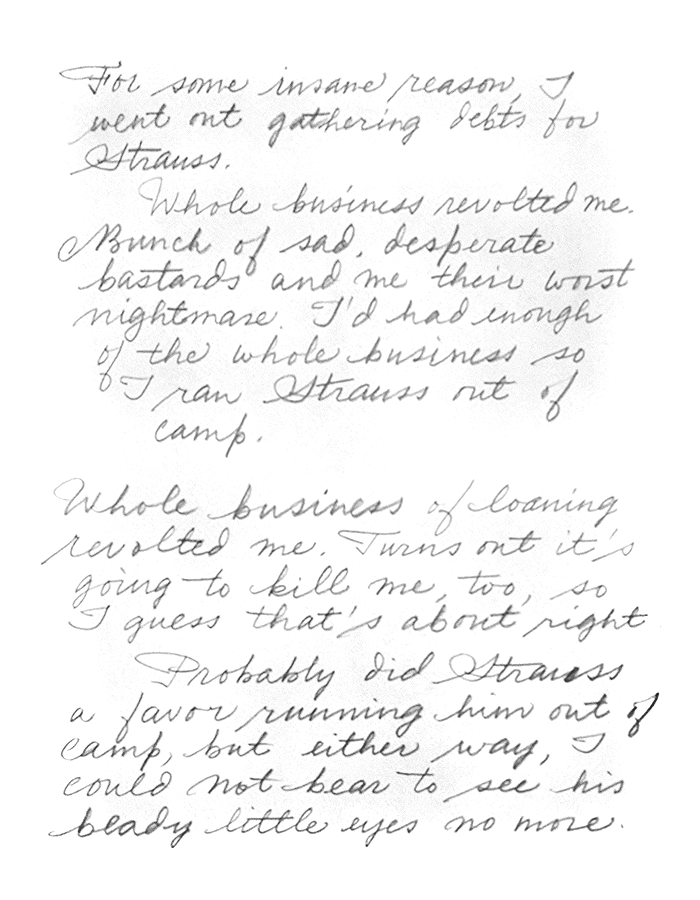 For some insane reason, I
went out gathering debts for
Strauss.
Whole business revolted me.
Bunch of sad, desperate
bastards and me their worst
nightmare. I'd had enough
of the whole business so
I ran Strauss out of
camp.
Whole business of loaning
revolted me. Turns out it's
going to kill me, too, so
I guess that's about right
Probably did Strauss
a favor running him out of
camp, but either way, I
could not bear to see his
beady little eyes no more.